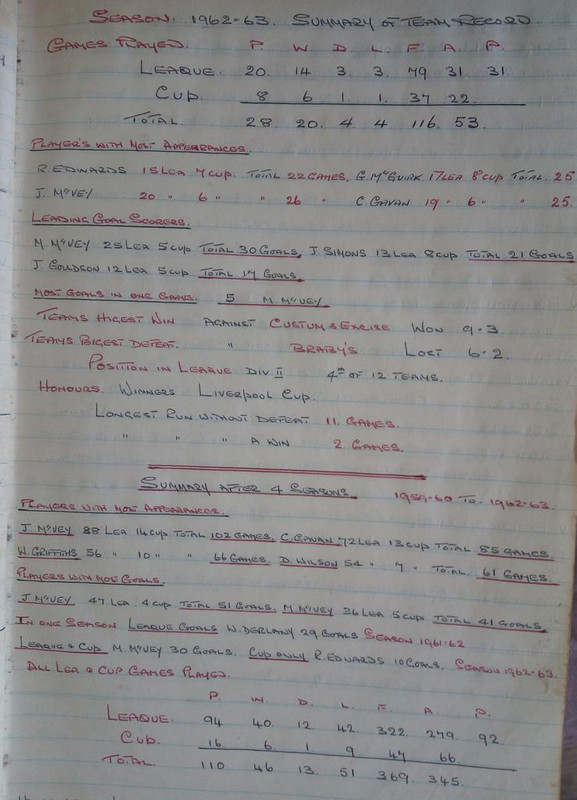 SEASON. 1962-63. SUMMARY OF TEAM RECORD
GAMES PLAYED. P. W. D. L. F. A. P.
LEAGUE. 20. 14 3. 3. 79. 31. 31
CUP. 8 6 1 1. 37 22.
TOTAL. 28 20. 4 4 116. 53.
PLAYER'S WITH MOST APPEARANCES.
R. EDWARDS 15 LEA 7 CUP. TOTAL 22 GAMES, G. McGUIRK 17 LEA 8 CUP TOTAL. 25
J. McVEY 20 " 6 " " 26 " C GAVAN 19 " 6 " " 25.
LEADING GOAL SCORERS.
M. McVEY 25 LEA 5 CUP TOTAL 30 GOALS, J. SIMONS 13 LEA 8 CUP TOTAL 21 GOALS
J GOLDSON 12 LEA 5 CUP TOTAL 17 GOALS.
MOST GOALS IN ONE GAME. 5 M. McVEY
TEAMS HIGEST WIN AGAINST CUSTUM & EXCISE WON 9-3.
TEAMS BIGEST DEFEAT. " BRABY'S LOST 6-2.
POSITION IN LEAGUE DIV II 4TH OF 12 TEAMS.
HONOURS. WINNERS LIVERPOOL CUP.
LONGEST RUN WITHOUT DEFEAT 11 GAMES.
" " " A WIN 2 GAMES.
SUMMARY AFTER 4 SEASONS. 1959-60 TO. 1962-63.
PLAYERS WITH MOST APPEARANCES.
J. McVEY 88 LEA 14 CUP TOTAL 102 GAMES, C. GAVAN 72 LEA 13 CUP TOTAL 85 GAMES
W. GRIFFITHS 56 " 10 " " 66 GAMES D. WILSON 54 " 7 " TOTAL. 61 GAMES.
PLAYERS WITH MOST GOALS.
J. McVEY 47 LEA 4 CUP TOTAL 51 GOALS, M. McVEY 36 LEA 5 CUP TOTAL 41 GOALS
IN ONE SEASON LEAGUE GOALS W. 29 GOALS SEASON 1961-62
LEAGUE & CUP M. McVEY 30 GOALS. CUP ONLY R. EDWARDS 10 GOALS. SEASON 1962-63.
ALL LEA & CUP GAMES PLAYED.
P. W. D. L. F. A. P.
LEAGUE. 94 40. 12 42 322. 279. 92
CUP. 16 6 1 9 47 66
TOTAL. 110 46 13. 51 369. 345.